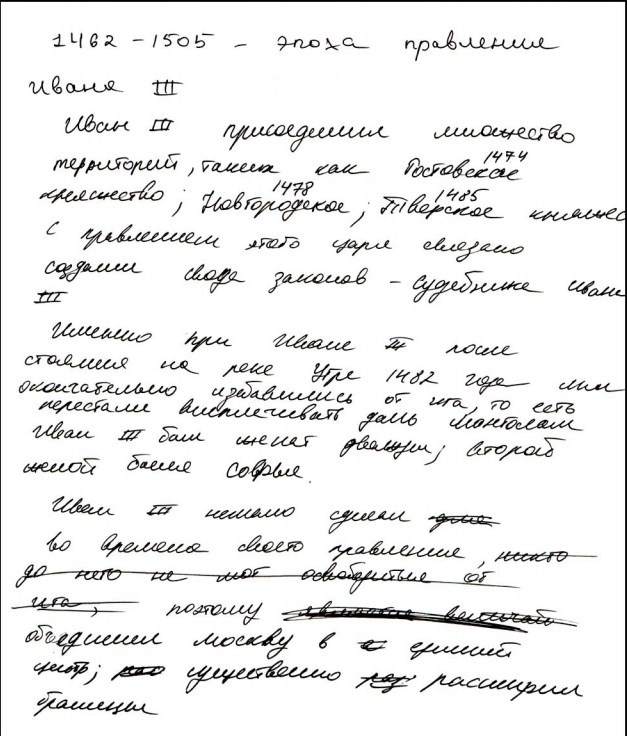 1462 - 1505 - эпоха правления
Ивана III
Иван III присоединил множество
территорий, таких как Ростовское 1474
княжество; Новгородское 1478; Тверское 1485 княжес
С правлением этого царя связано
создании свода законов - судебника Ивана
III
Именно при Иване III после
стояния на реке Угре 1482 года мы
окончательно избавились от ига, то есть
перестали выплачивать дань монголам
Иван III был женат дважды; второй
женой была Софья.
Иван III немало сделал для
во времена своего правления, никто
до него не мог освободиться от
ига, поэтому
объединил Москву в единый
центр; существенно расширил
границы